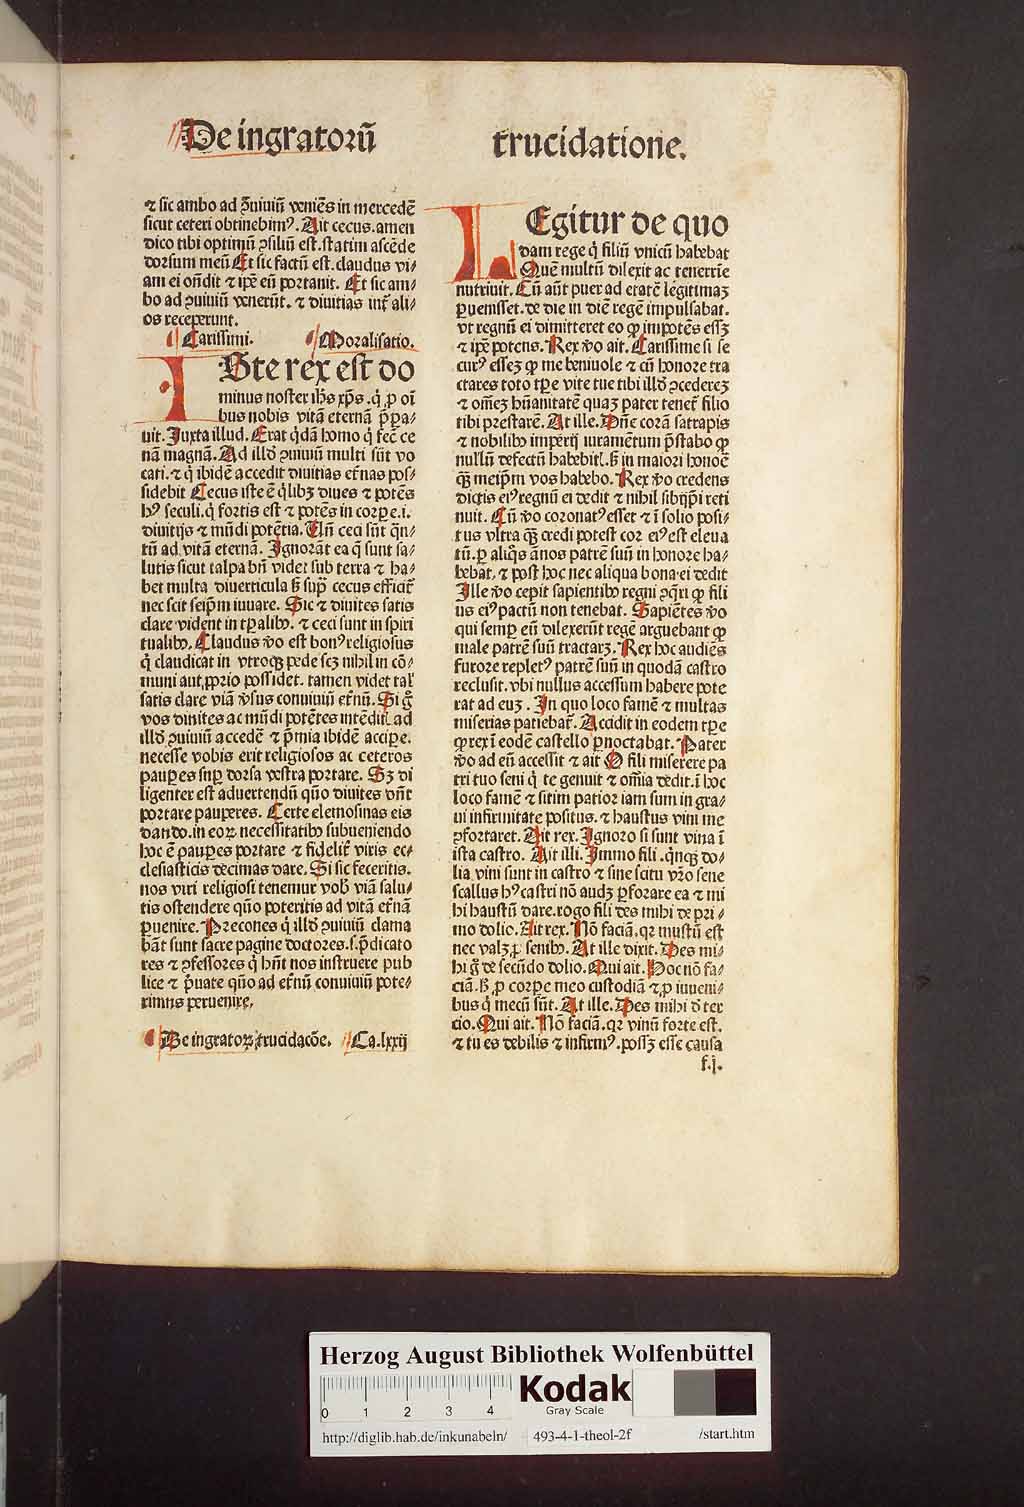 De ingratorū
trucidatione.
⁊ sic ambo ad ꝯuiuiū veniēs in mercedē
sicut ceteri obtinebimꝰ. Ait cecus. amen
dico tibi optimū ꝯsiliū est. statim ascēde
dorsum meū Et sic factū est. claudus vi⸗
am ei oñdit ⁊ ip̄e eū portauit. Et sic am⸗
bo ad ꝯuiuiū venerūt. ⁊ diuitias int̄ ali⸗
os receperunt.
Carissimi. Moralisatio.
ISte rex est do
minus noster ih̄s xp̄s. q̇ ꝓ oī
bus nobis vitā eternā p̄pa⸗
uit. Juxta illud. Erat q̇dā homo q̇ fec̄ ce
nā magnā. Ad illō ꝯuiuiū multi sūt vo
cati. ⁊ q̇ ibidē accedit diuitias et̄nas pos⸗
sidebit Cecus iste ē q̇libꝫ diues ⁊ potēs
hꝰ seculi. q̇ fortis est ⁊ potēs in corꝑe. i.
diuitijs ⁊ mūdi potētia. Tn̄ ceci sūt q̄n⸗
tū ad vitā eternā. Ignorāt ea q̄ sunt sa⸗
lutis sicut talpa bn̄ videt sub terra ⁊ ha⸗
bet multa diuerticula sꝫ suꝑ cecus efficit̄
nec scit seip̄m iuuare. Sic ⁊ diuites satis
clare vident in tꝑalibꝰ. ⁊ ceci sunt in spiri
tualibꝰ. Claudus v̄o est bonꝰ religiosus
q̇ claudicat in vtroqꝫ pede scꝫ nihil in cō⸗
muni aut ꝓprio possidet. tamen videt tal̄
satis clare viā v̄sus conuiuiū et̄nū. Si g̊
vos diuites ac mūdi potētes intēdit̄ ad
illō ꝯuiuiū accedē ⁊ p̄mia ibidē acciꝑe.
necesse vobis erit religiosos ac ceteros
pauꝑes suꝑ dorsa vestra portare. Sꝫ di
ligenter est aduertendū quō diuites dn̄t
portare pauperes. Certe elemosinas eis
dando. in eoꝝ necessitatibꝰ subueniendo
hoc ē pauꝑes portare ⁊ fidelit̄ viris ec⸗
clesiasticis decimas dare. Si sic feceritis.
nos viri religiosi tenemur vob̄ viā salu⸗
tis ostendere quō poteritis ad vitā et̄nā
ꝑuenire. Precones q̇ illō ꝯuiuiū clama
bāt sunt sacre pagine doctores. s. p̄dicato
res ⁊ ꝯfessores q̇ hn̄t nos instruere pub
lice ⁊ p̄uate quō ad et̄nū conuiuiū pote⸗
rimus peruenire.
De ingratoꝝ trucidacōe. Ca. lxxij
LEgitur de quo
dam rege q̇ filiū vnicū habebat
Quē multū dilexit ac tenerrīe
nutriuit. Cū aūt puer ad etatē legitimaꝫ
ꝑuenisset. de die in diē regē impulsabat.
vt regnū ei dimitteret eo ꝙ impotēs essꝫ
⁊ ip̄e potens. Rex v̄o ait. Carissime si se
curꝰ esseꝫ ꝙ me beniuole ⁊ cū honore tra
ctares toto tꝑe vite tue tibi illō ꝯcedereꝫ
⁊ om̄eꝫ hūanitatē quaꝫ pater tenet̄ filio
tibi prestarē. At ille. Dn̄e corā satrapis
⁊ nobilibꝰ imperij iuramētum p̄stabo ꝙ
nullū defectū habebit̄. sꝫ in maiori honoē
qꝫ meip̄m vos habebo. Rex v̄o credens
dictis eiꝰ regnū ei dedit ⁊ nihil sibijp̄i reti
nuit. Cū v̄o coronatꝰ esset ⁊ ī solio posi⸗
tus vltra qꝫ credi potest cor eiꝰ est eleua
tū. ꝑ aliq̇s ānos patrē suū in honore ha⸗
bebat. ⁊ post hoc nec aliqua bona ei dedit
Ille v̄o cepit sapientibꝰ regni ꝯq̇ri ꝙ fili
us eiꝰ pactū non tenebat. Sapiētes v̄o
qui semꝑ eū dilexerūt regē arguebant ꝙ
male patrē suū tractaꝫ. Rex hoc audiēs
furore repletꝰ patrē suū in quodā castro
reclusit. vbi nullus accessum habere pote
rat ad euꝫ. In quo loco famē ⁊ multas
miserias patiebat̄. Accidit in eodem tꝑe
ꝙ rex ī eodē castello ꝑnoctabat. Pater
v̄o ad eū accessit ⁊ ait O fili miserere pa
tri tuo seni q̇ te genuit ⁊ om̄ia dedit. ī hoc
loco famē ⁊ sitim patior iam sum in gra⸗
ui infirmitate positus. ⁊ haustus vini me
ꝯfortaret. Ait rex. Ignoro si sunt vina ī
ista castro. Ait illi. Immo fili. q̇nqꝫ do⸗
lia vini sunt in castro ⁊ sine scitu vr̄o sene
scallus hꝰ castri nō audꝫ ꝑforare ea ⁊ mi
hi haustū dare. rogo fili des mihi de pri⸗
mo dolio. Ait rex. Nō faciā. qꝛ mustū est
nec valꝫ ꝓ senibꝰ. At ille dixit. Des mi⸗
hi g̊ de secūdo dolio. Qui ait. Hoc nō fa⸗
ciā. sꝫ ꝓ corꝑe meo custodiā ⁊ ꝓ iuueni⸗
bus q̇ mecū sūt. At ille. Des mihi d̄ ter
cio. Qui ait. Nō faciā. qꝛ vinū forte est.
⁊ tu es debilis ⁊ infirmꝰ. possꝫ esse causa
f.j.
Herzog August Bibliothek Wolfenbüttel
0 1 2 3 4
Kodak
Gray Scale
http://diglib.hab.de/inkunabeln/ 493-4-1-theol-2f /start.htm